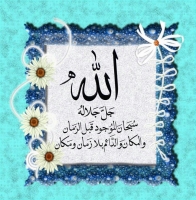 الله
جَلَّ جَلَالُهُ
سُبْحَانَ الْمَوْجُودِ قَبْلَ الزَّمَانِ
وَالْمَكَانِ وَالدَّائِمِ بِلَا زَمَانٍ وَمَكَانٍ